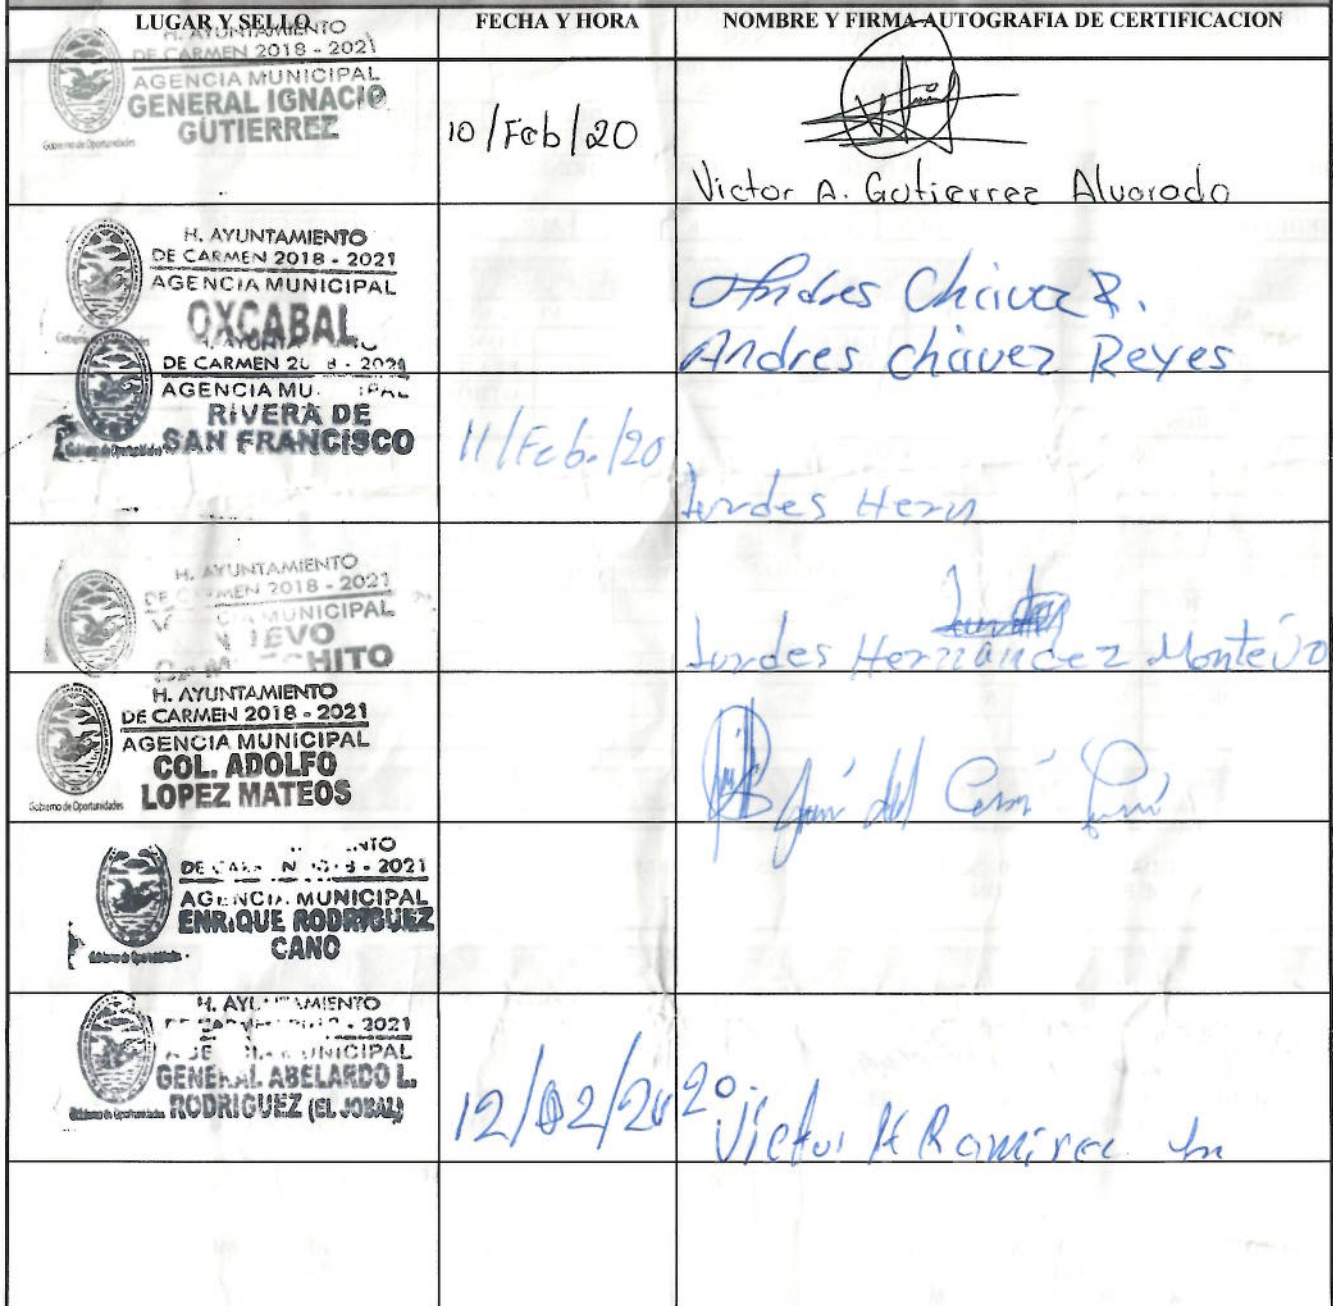 LUGAR Y SELLO
FECHA Y HORA
NOMBRE Y FIRMA AUTOGRAFIA DE CERTIFICACION
H. AYUNTAMIENTO
DE CARMEN 2018 - 2021
AGENCIA MUNICIPAL
GENERAL IGNACIO
GUTIERREZ
Gobierno de Oportunidades
10/Feb/20
Victor A. Gutierrez Alvarado
H. AYUNTAMIENTO
DE CARMEN 2018 - 2021
AGENCIA MUNICIPAL
OXCABAL
Andres Chávez R.
Andres Chávez Reyes
DE CARMEN 2018 - 2021
AGENCIA MUNICIPAL
RIVERA DE
SAN FRANCISCO
Gobierno de Oportunidades
11/Feb./20
Lurdes Hern
H. AYUNTAMIENTO
DE CARMEN 2018 - 2021
MUNICIPAL
Lurdes Hernández Montejo
H. AYUNTAMIENTO
DE CARMEN 2018 - 2021
AGENCIA MUNICIPAL
COL. ADOLFO
LOPEZ MATEOS
Gobierno de Oportunidades
del
2021
AGENCIA MUNICIPAL
ENRIQUE RODRIGUEZ
CANO
H. AYUNTAMIENTO
2021
MUNICIPAL
GENERAL ABELARDO L.
RODRIGUEZ (EL JOBAL)
12/02/2020
Victor H Ramirez